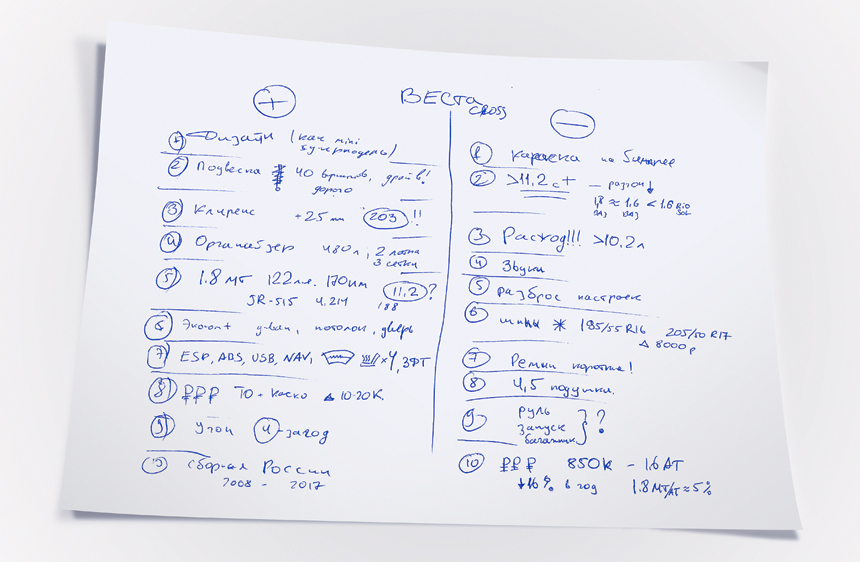 ВЕСТА CROSS
+
1 Дизайн (как mini
супермодель)
2 Подвеска 40 дорого, драйв!
3 Клиренс +25 мм 203 !!
4 Органайзер 480л, 2 лотка
3 сетки
5 1.8 МТ 122лс. 170нм 11,2 ?
JR-515 4.2M 188
6 потолок, дверь
7 ESP, ABS, USB, NAVI, x4, ЭРТ
8 ₽₽₽ ТО + каско Δ 10-20К
9 Угон 4-завод
10 Сборная России
2008 - 2017
—
1 на бинарее
2 >11.2 с + — разгон ↓
1,8 ≈ 1.6 < 1.6 Rio
ваз ваз Sol
3 Расход!!! >10.2л
4 Звуки
5 Разброс настроек
6 шины * 195/55 R16 205/50 R17
Δ 8000р
7 Ремни коротка!
8 4,5 подушки.
9 руль
запуск } ?
багажник
10 ₽₽₽ 850К - 1.6 АТ
↓16% в год 1.8 МТ/АТ ≈ 5%